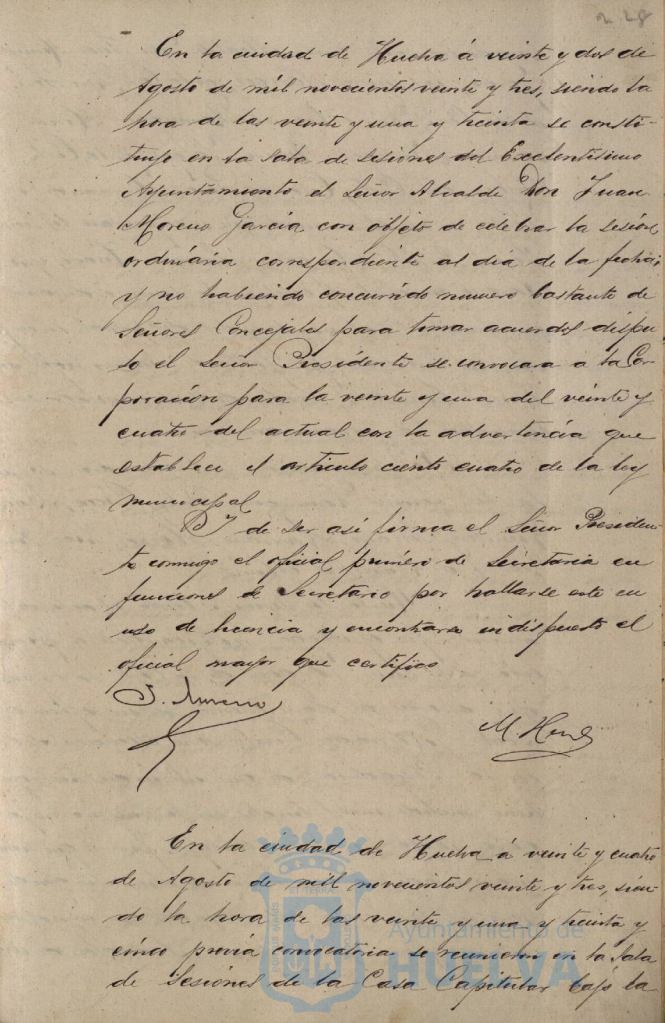 228
En la ciudad de Huelva á veinte y dos de
Agosto de mil novecientos veinte y tres, siendo la
hora de las veinte y una y treinta se consti-
tuyo en la sala de sesiones del Excelentísimo
Ayuntamiento el Señor Alcalde Don Juan
Moreno García con objeto de celebrar la sesión
ordinária correspondiente al dia de la fecha;
y no habiendo concurrido numero bastante de
Señores Concejales para tomar acuerdos dispu-
so el Señor Presidente se convocara a la Cor-
poración para la veinte y una del veinte y
cuatro del actual con la advertencia que
establece el artículo ciento cuatro de la ley
municipal
Y de ser así firma el Señor Presiden-
te conmigo el oficial primero de Secretaria en
funciones de Secretario por hallarse este en
uso de licencia y encontrarse indispuesto el
oficial mayor que certifico
J. Moreno
M.
En la ciudad de Huelva á veinte y cuatro
de Agosto de mil novecientos veinte y tres, sien-
do la hora de las veinte y una y treinta y
cinco previa convocatoria se reunieron en la Sala
de Sesiones de la Casa Capitular bajo la
Ayuntamiento de
HUELVA